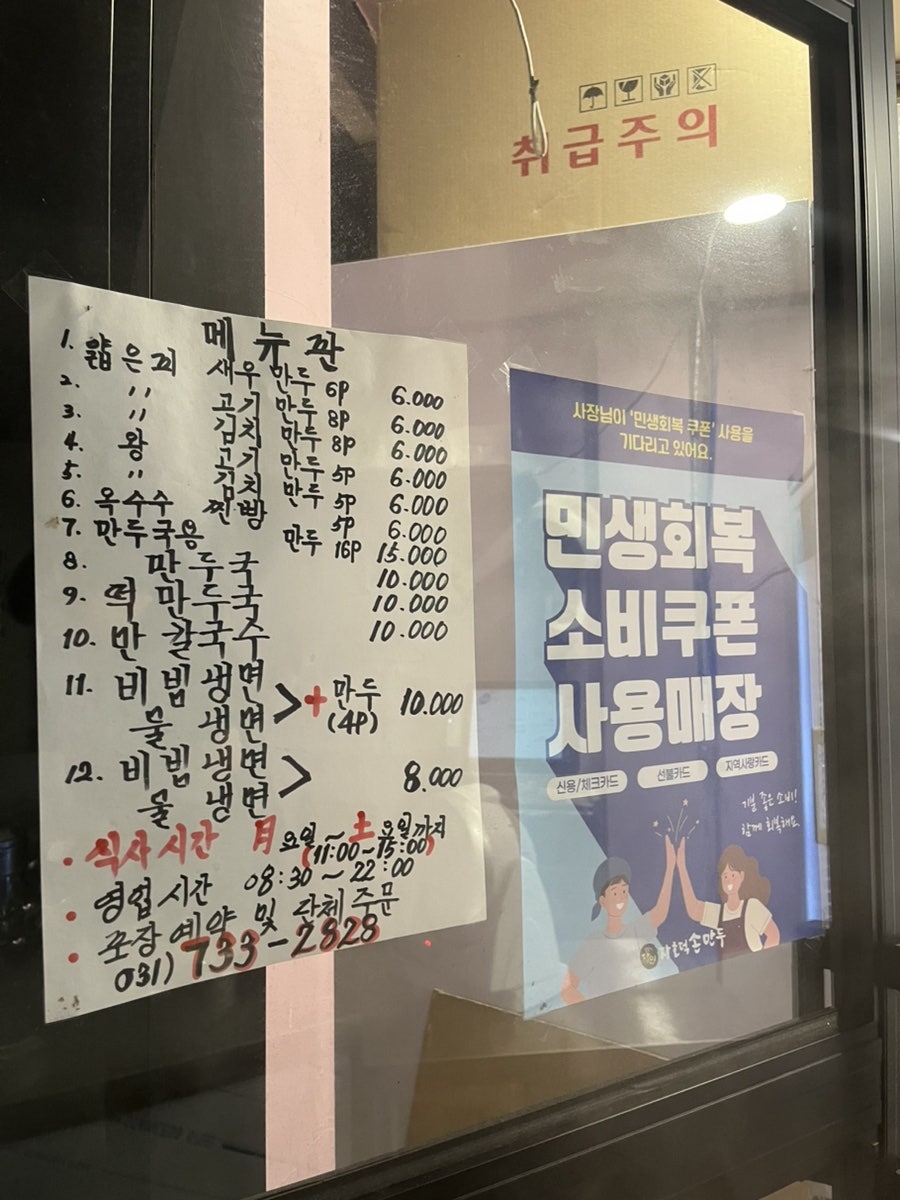 취급주의
메뉴판
1. 얇은피 새우 만두 6P 6.000
2. 〃 고기 만두 8P 6.000
3. 〃 김치 만두 8P 6.000
4. 왕 고기 만두 5P 6.000
5. 〃 김치 만두 5P 6.000
6. 옥수수 찐빵 5P 6.000
7. 만두국용 만두 16P 15.000
8. 만두국 10.000
9. 떡 만두국 10.000
10. 만 칼국수 10.000
11. 비빔냉면
물 냉면 > + 만두 (4P) 10.000
12. 비빔냉면
물 냉면 > 8.000
• 식사시간 月요일~土요일까지
(11:00~15:00)
• 영업시간 08:30~22:00
• 포장예약 및 단체주문
031) 733-2828
사장님이 '민생회복 쿠폰' 사용을
기다리고 있어요.
민생회복
소비쿠폰
사용매장
신용/체크카드 선불카드 지역사랑카드
기분 좋은 소비!
함께 회복해요.
자호덕 손만두